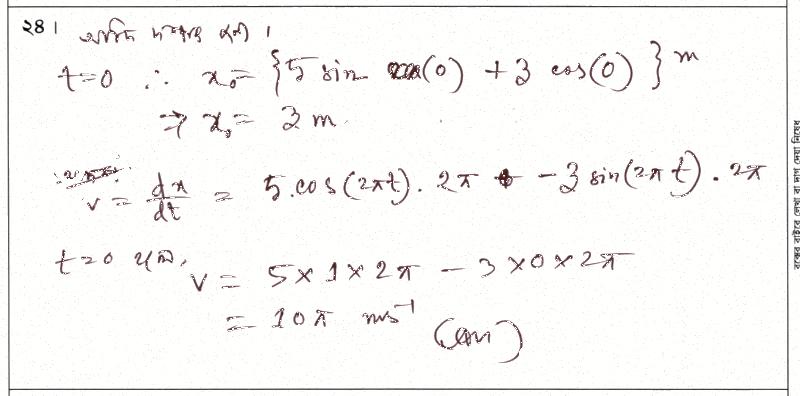 ২৪। আদি দশায় হলে।
t=0 ∴ x₀ = {5 sin (0) + 3 cos(0)} m
⇒ x₀ = 3 m.
v = dx/dt = 5.cos(2πt). 2π - 3 sin(2πt). 2π
t=0 হলে, v = 5×1×2π - 3×0×2π
= 10π ms⁻¹ (Ans)
বক্সের বাইরে লেখা বা দাগ দেয়া নিষেধ